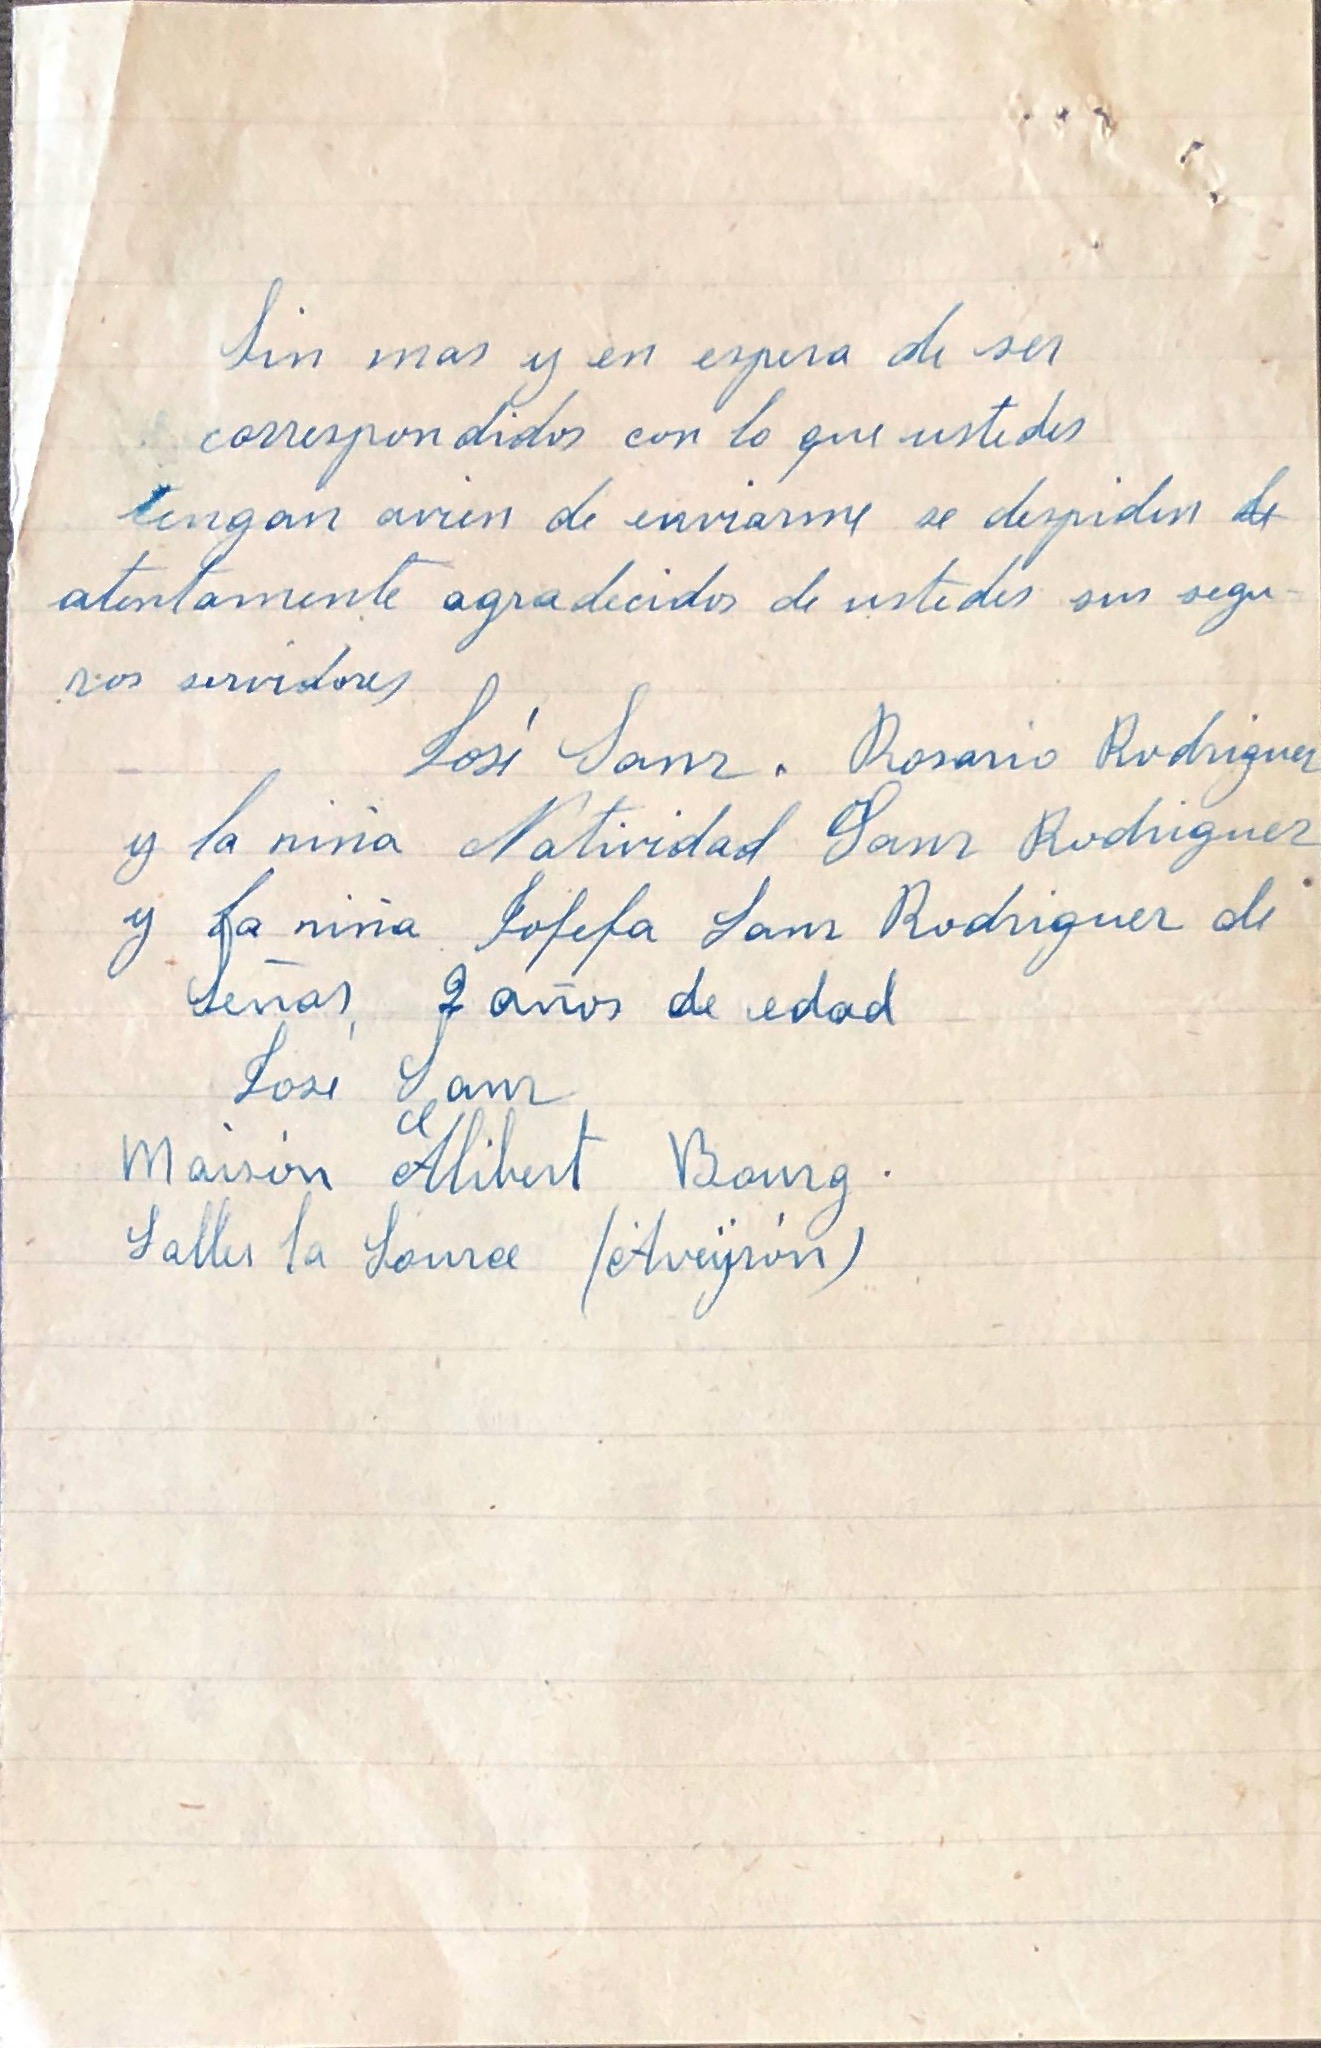 Sin mas y en espera de ser
correspondidos con lo que ustedes
tengan avien de enviarme se despiden de
atentamente agradecidos de ustedes sus segu-
ros servidores
José Sanz. Rosario Rodriguez
y la niña Natividad Sanz Rodriguez
y la niña Josefa Sanz Rodriguez de
Señas, 2 años de edad
José Sanz
Maisón Alibert Bourg.
Salles la Source (Aveÿrón)